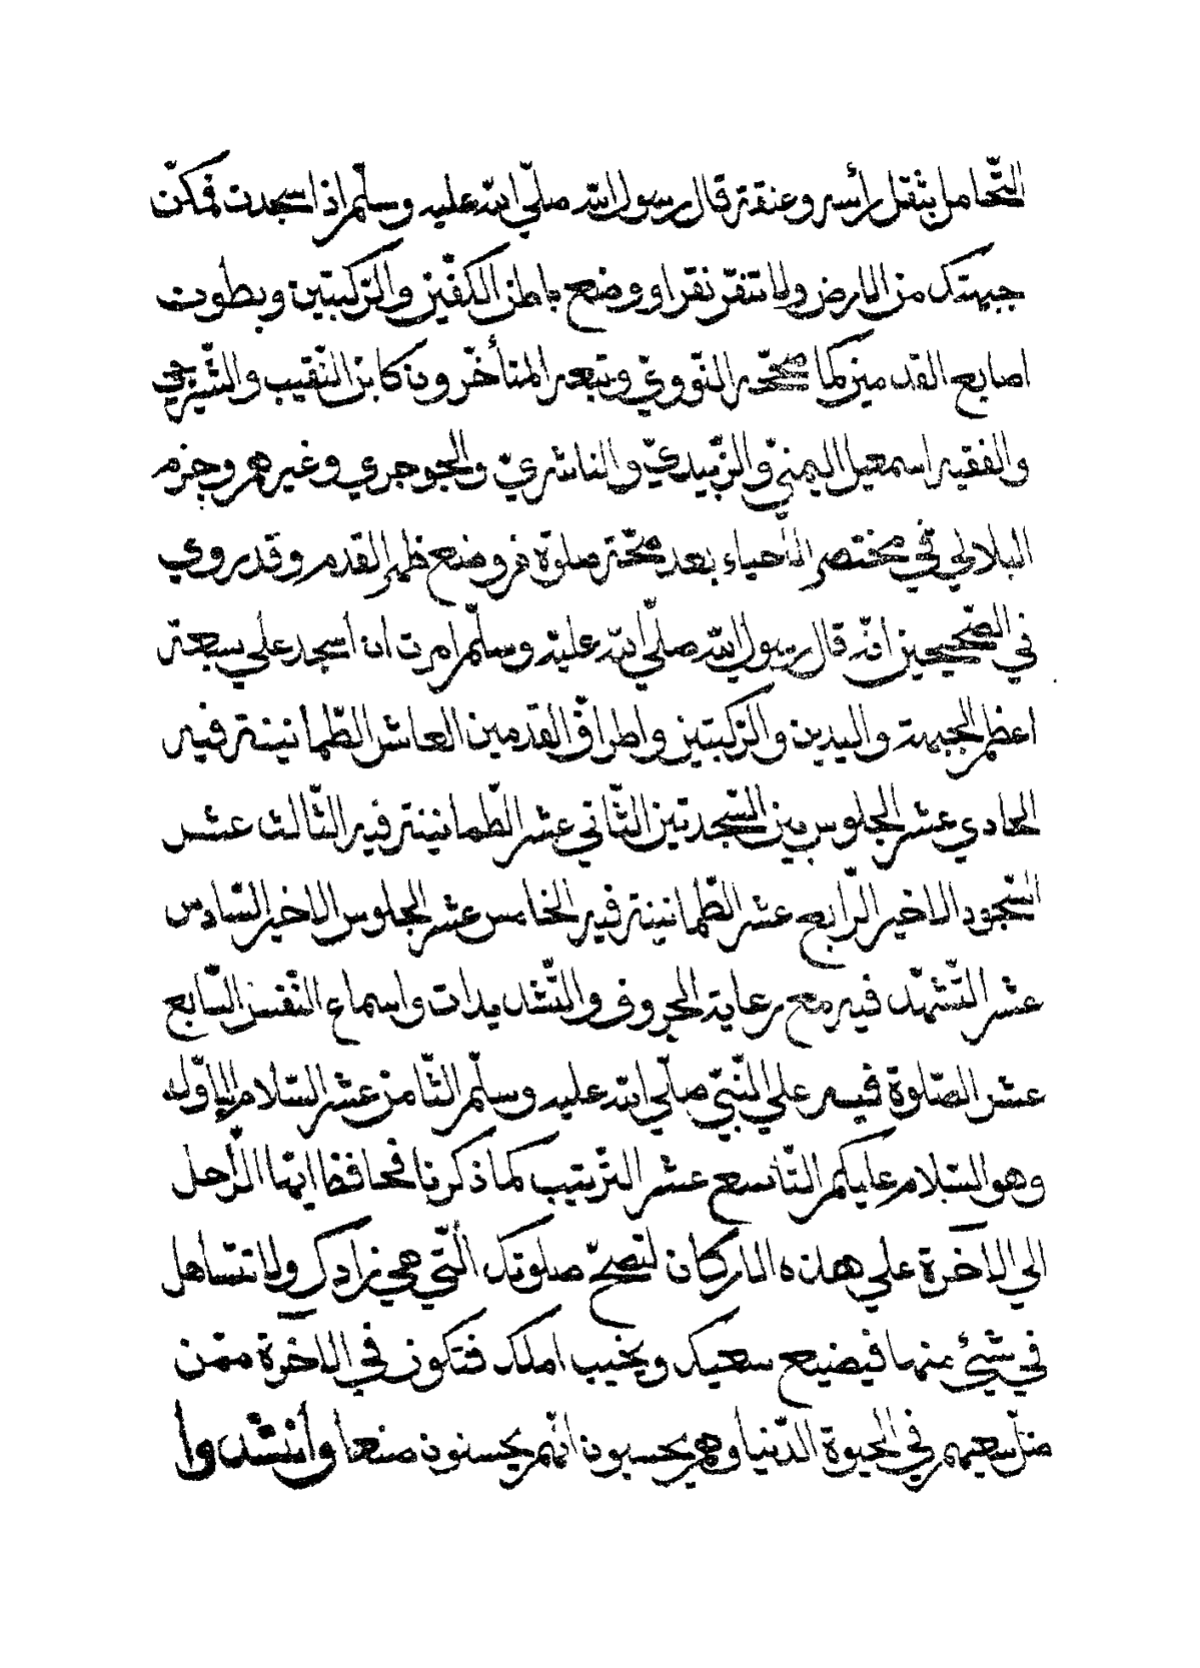 التّحامل بثقل رأسه وعنقة قال رسول الله صلّي الله عليه وسلّم اذا سجدت فمكّن
جبهتك من الارض ولا تنقر نقرا ووضع باطن الكفّين والرّكبتين وبطون
اصابع القدمين كما صحّحه النّوويّ وتبعه المتأخّرون كابن النّقيب والشّيرجي
والفقيه اسمعيل اليمنيّ والزّبيديّ والناشريّ والجوجري وغيرهم وجزم
البلالي في مختصر الأحياء بعد صحّة صلوة من وضع ظهر القدم وقد روي
في الصّحيحين انّه قال رسول الله صلّي الله عليه وسلّم امرت ان اسجد علي سبعة
اعظم الجبهة واليدين والرّكبتين واطراف القدمين العاشر الطّمانينة فيه
الحادي عشر الجلوس بين السّجدتين الثّاني عشر الطّمانينة فيه الثّالث عشر
السّجود الاخير الرّابع عشر الطّمانينة فيه الخامس عشر الجلوس الاخير السّادس
عشر التّشهّد فيه مع رعاية الحروف والتّشديدات واسماع النّفس السّابع
عشر الصّلوة فيه علي النّبيّ صلّي الله عليه وسلّم الثّامن عشر السّلام الاوّل
وهو السّلام عليكم التّاسع عشر التّرتيب كما ذكرنا فحافظ ايّها الرّاحل
الي الآخرة علي هذه الاركان لتصحّ صلوتك الّتي هي زادك ولا تتساهل
في شيئ منها فيضيع سعيك ويخيب املك فتكون في الآخرة ممّن
ضلّ سعيهم في الحيوة الدّنيا وهم يحسبون انّهم يحسنون صنعا وأنشدوا